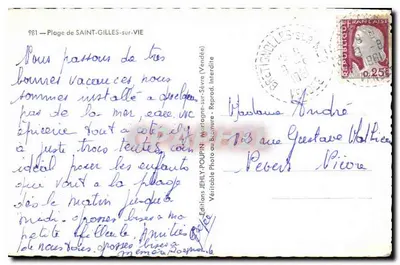 981 - Plage de SAINT-GILLES-sur-VIE
Nous passons de très
bonnes vacances, nous
sommes installé a quelques
pas de la mer, avec une
épicerie tout a coté, il y
a juste trois tentes, c'est
idéal pour les enfants
qui vont a la plage
dès le matin jusqu'a
midi. grosses bises a ma
petite Amitiés
de nous tous. grosses bises
Editions JEHLY-POUPIN Mortagne-sur-Sèvre (Vendée)
Véritable Photo au Bromure - Reprod. Interdite
REPUBLIQUE FRANÇAISE
0,25
Madame André
13 rue Gustave Mathieu
Nevers Nièvre